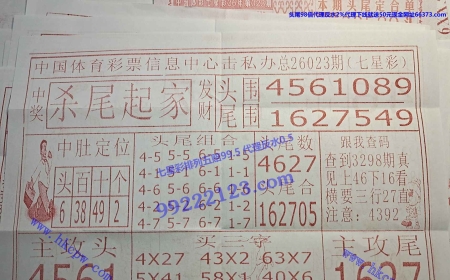 头尾98倍代理反水2%代理下线就送50元现金网址66373.com
本期头尾定台单
中国体育彩票信息中心击私办总26023期(七星彩)
中奖 杀尾起家 发财 头围 4561089
尾围 1627549
中肚定位
头百十个
6 38 49 2
头尾组合
4-5 5-5 6-5
4-6 6-1 1-1
4-7 6-6 1-6
4-5 5-7 6-7 1-7
尾数
4627
头尾合
162705
跟我查码
查到3298期真
见上46下16看
横要三行27直
注意:4392
七星彩排列五Ⅲ99.5 代理反水0.5
99222123.com
www.hkcpw.com
主攻头
4561
头三字
4X27 43X2 63X7
5X41 58X1 40X6
主攻尾
1627